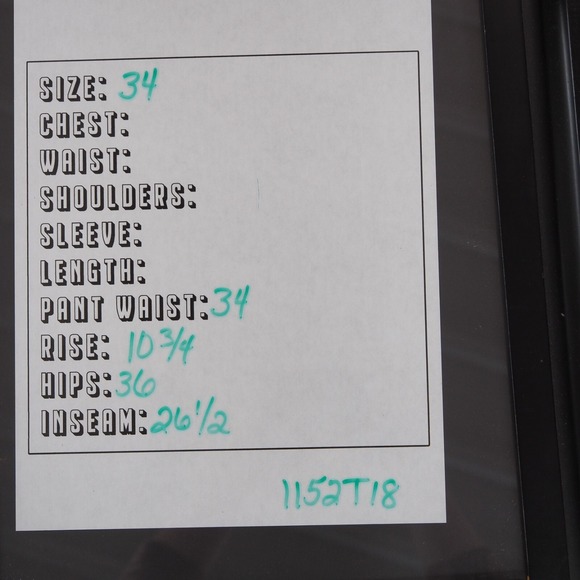 SIZE: 34
CHEST:
WAIST:
SHOULDERS:
SLEEVE:
LENGTH:
PANT WAIST: 34
RISE: 10 3/4
HIPS: 36
INSEAM: 26 1/2
1152T18